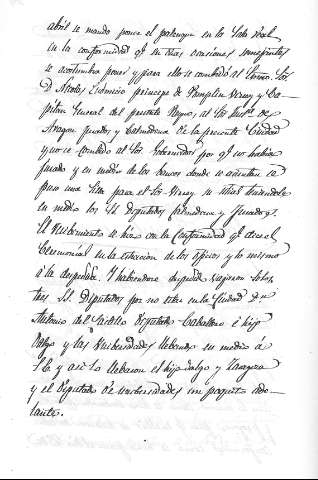 abril se mando poner el palenque en la Sala Real
en la conformidad q.e en otras ocasiones semejantes
se acostumbra poner y para ello se combidó al Exmo. Sor.
D. Nicolas principe de Pomplin Virrey y Ca-
pitan General del presente Reyno, al Sor. de
Aragon Jurados y de la presente Ciudad
y no se combido al Sor. Gobernador por q.e no habia
jurado y en medio de los bancos donde se asientan se
puso una silla para el Sor. Virrey se
en medio los SS. Diputados y Jurados.
El recibimiento se hizo con la conformidad q.e dice el
Ceremonial en la de los y lo mismo
á la despedida. Y habiendose despedido bajaron solos
tres SS. Diputados por no estar en la Ciudad D.n
Antonio del Castillo Diputado Caballero é hijo
dalgo y las Universidades llebando en medio á
S.E. y asi lo llebaron el hijo dalgo y Zaragoza
y el Diputado de universidades un poquito ade-
lante.